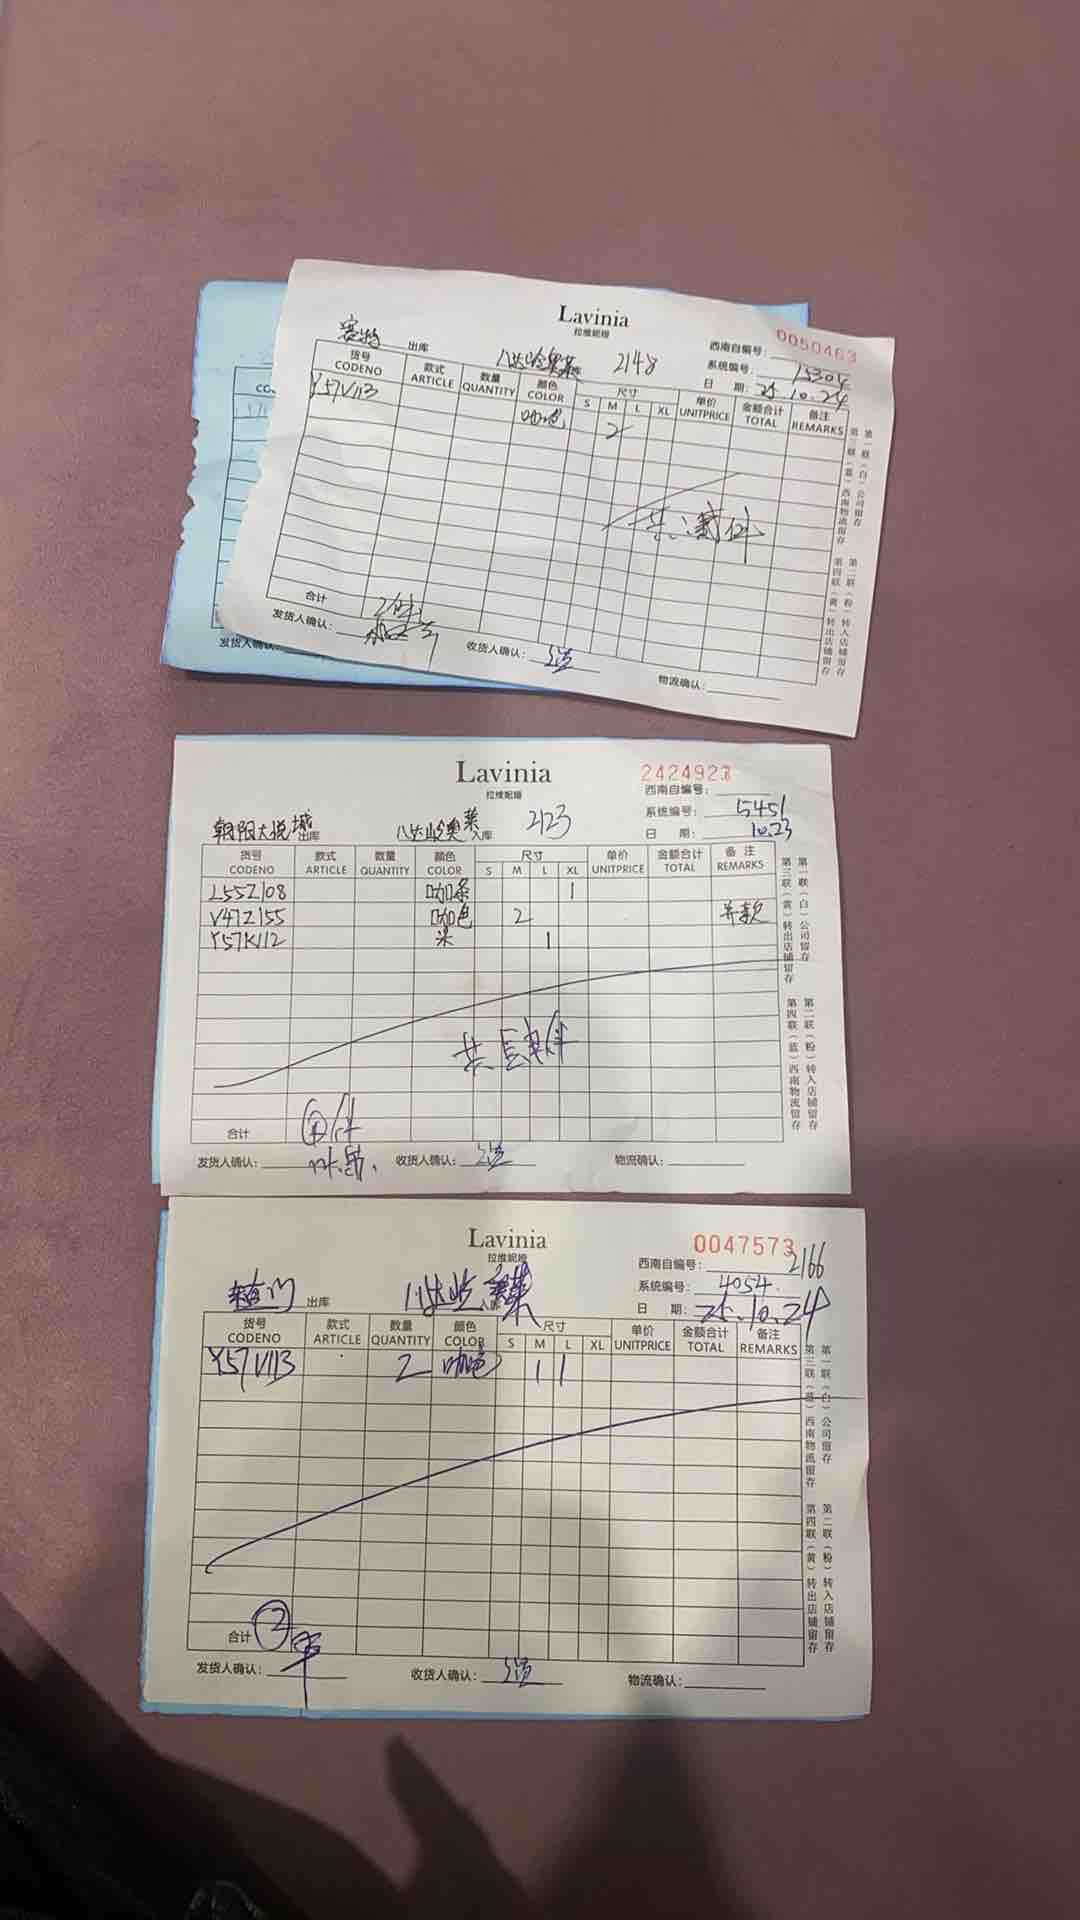 Lavinia
拉维妮娅
0050463
赛特 出库
八达岭奥莱 2148
西南自编号:
系统编号: 15304
日 期: 25.10.24
货号 CODENO 款式 ARTICLE 数量 QUANTITY 颜色 COLOR 尺寸 S M L XL 单价 UNITPRICE 金额合计 TOTAL 备注 REMARKS
Y57V113 咖色 2
共:贰件
合计 2件
发货人确认:
收货人确认:
物流确认:
第一联(白)公司留存
第二联(粉)转入店铺留存
第三联(蓝)西南物流留存
第四联(黄)转出店铺留存
发货人确认:
Lavinia
拉维妮娅
2424923
朝阳大悦城 出库
八达岭奥莱 入库 2123
西南自编号:
系统编号: 5451
日 期: 10.23
货号 CODENO 款式 ARTICLE 数量 QUANTITY 颜色 COLOR 尺寸 S M L XL 单价 UNITPRICE 金额合计 TOTAL 备注 REMARKS
L55Z108 咖条 1
V47Z155 咖色 2
Y57K112 米 1
合计 ④件
发货人确认:
收货人确认:
物流确认:
第一联(白)公司留存
第二联(粉)转入店铺留存
第三联(黄)转出店铺留存
第四联(蓝)西南物流留存
Lavinia
拉维妮娅
0047573
出库
八达岭奥莱 入库
西南自编号: 2166
系统编号: 4054
日 期: 25.10.24
货号 CODENO 款式 ARTICLE 数量 QUANTITY 颜色 COLOR 尺寸 S M L XL 单价 UNITPRICE 金额合计 TOTAL 备注 REMARKS
Y57V113 2 咖色 1 1
合计 ②
发货人确认:
收货人确认:
物流确认:
第一联(白)公司留存
第二联(粉)转入店铺留存
第三联(蓝)西南物流留存
第四联(黄)转出店铺留存